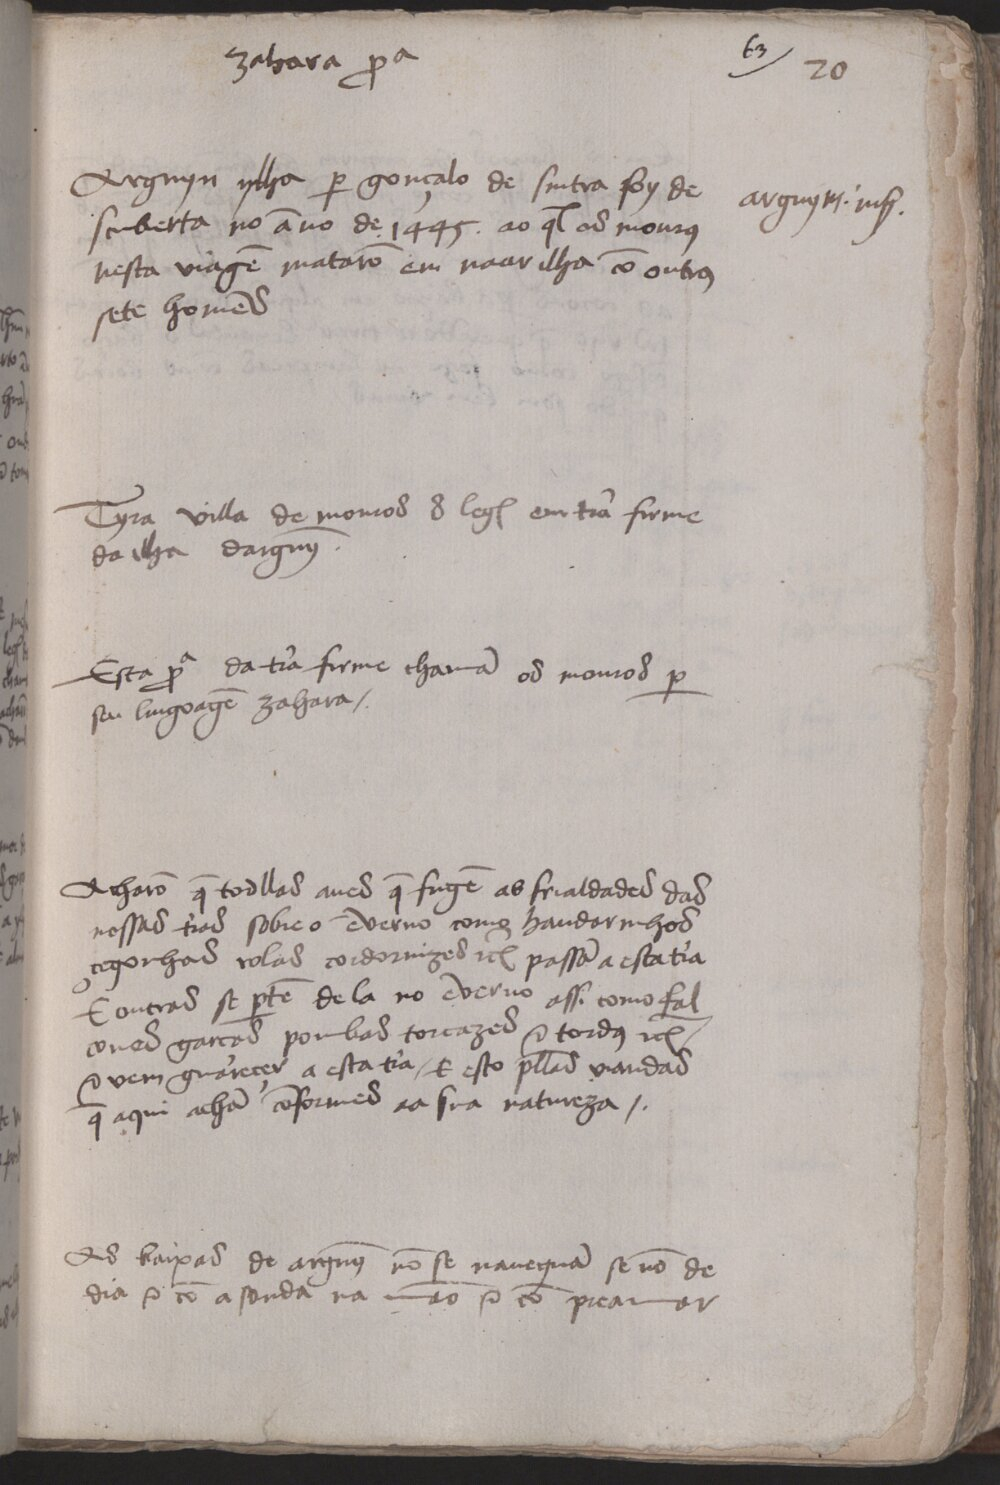 zahara pª
63
20
Arguyn ylha per gonçalo de sintra foy de
scuberta no año de .1445. ao ql os mourꝯ
nesta viagẽ matarõ em naar ilha cõ outrꝯ
sete homẽs
arguym. insᵃ.
Tyra villa de mouros 8 legˢ em trª firme
da ilha darguỹ.
Esta pª da trª firme chamã os mouros per
seu lingoagẽ zahara /.
Acharõ q̃ todllas aues q̃ fugẽ as frialdades das
nossas trãs sobre o ẽverno como handorinhos
çegonhas rolas cordornizes rcˢ passã a esta trª
E outras se ptẽ de la no ẽverno assi como fal
cones garcas pombas torcazes e tordꝯ rcˢ /
e vem guareçer a esta trª / E esto pllas viandas
q̃ aqui achã cõformes aa sua natureza /.
As baixas de arguỹ nõ se nauegnã se nõ de
dia e cõ a sonda na mão e cõ preamar